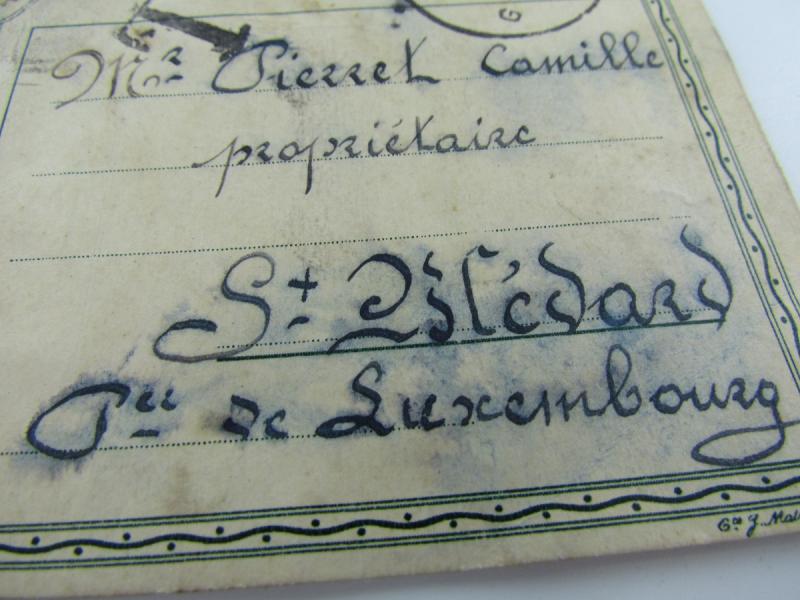 Mr Pierret Camille
propriétaire
St Médard
Pce de Luxembourg
G